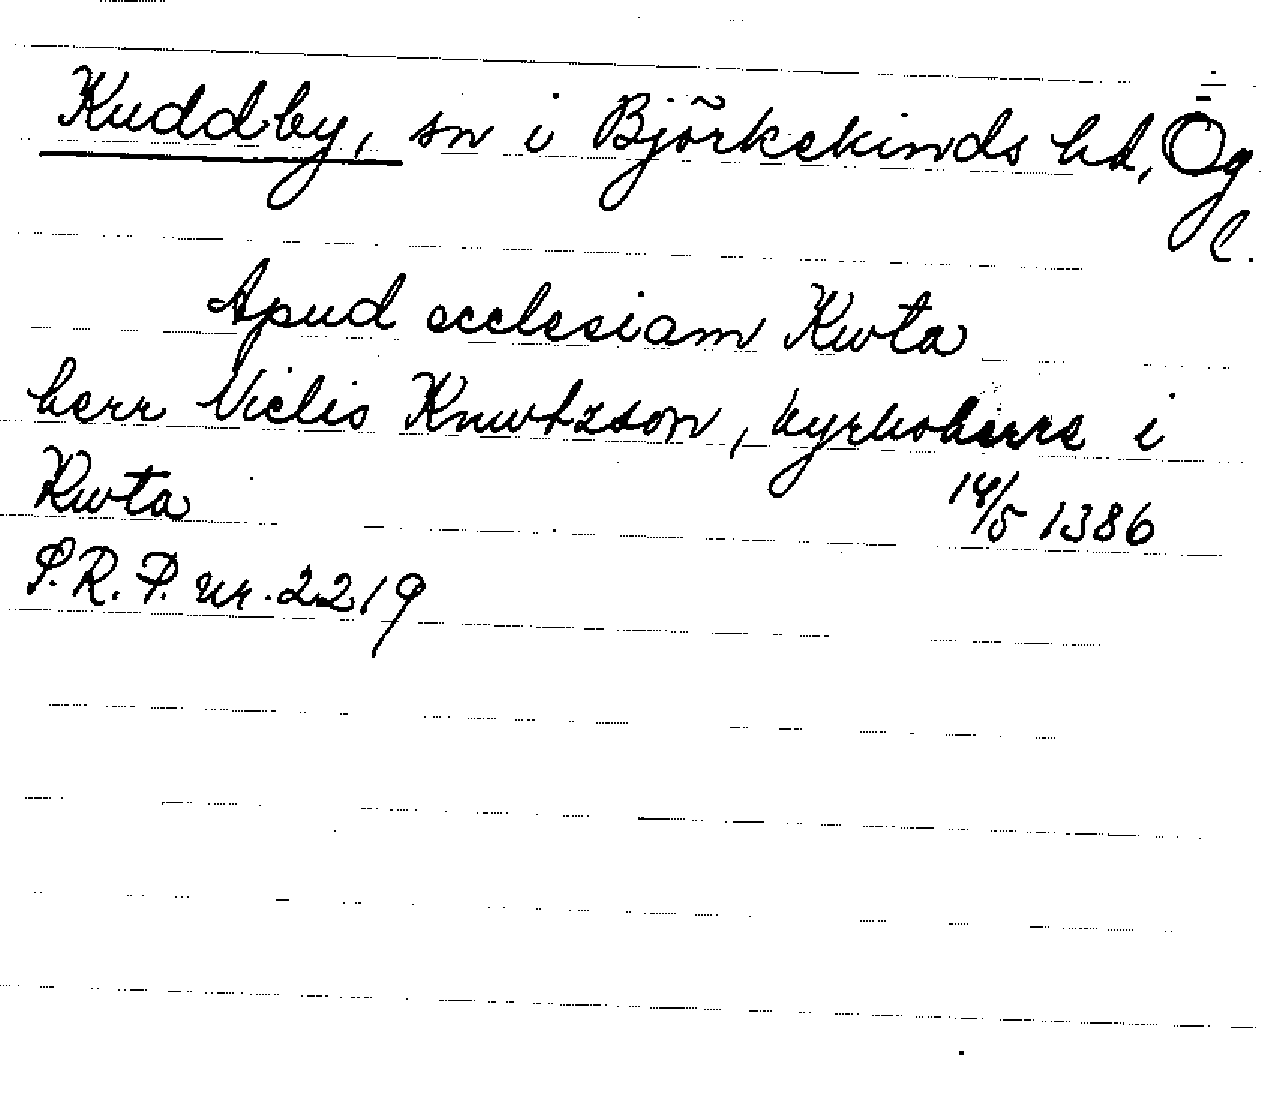 Kuddby, sn i Björkekinds hd, Ög
l.
Apud ecclesiam Kwta
herr Niclis Knwtzson, kyrkoherre i
Kwta 14/5 1386
S.R.P. nr. 2219